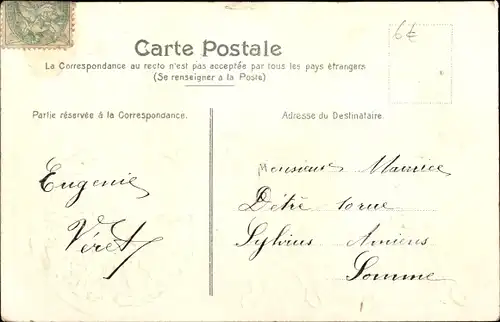 6€
Carte Postale
La Correspondance au recto n'est pas acceptée par tous les pays étrangers
(Se renseigner à la Poste)
Partie réservée à la Correspondance.
Adresse du Destinataire.
Eugenie
Véret
Monsieur Maurice
Sylvius Amiens
Somme